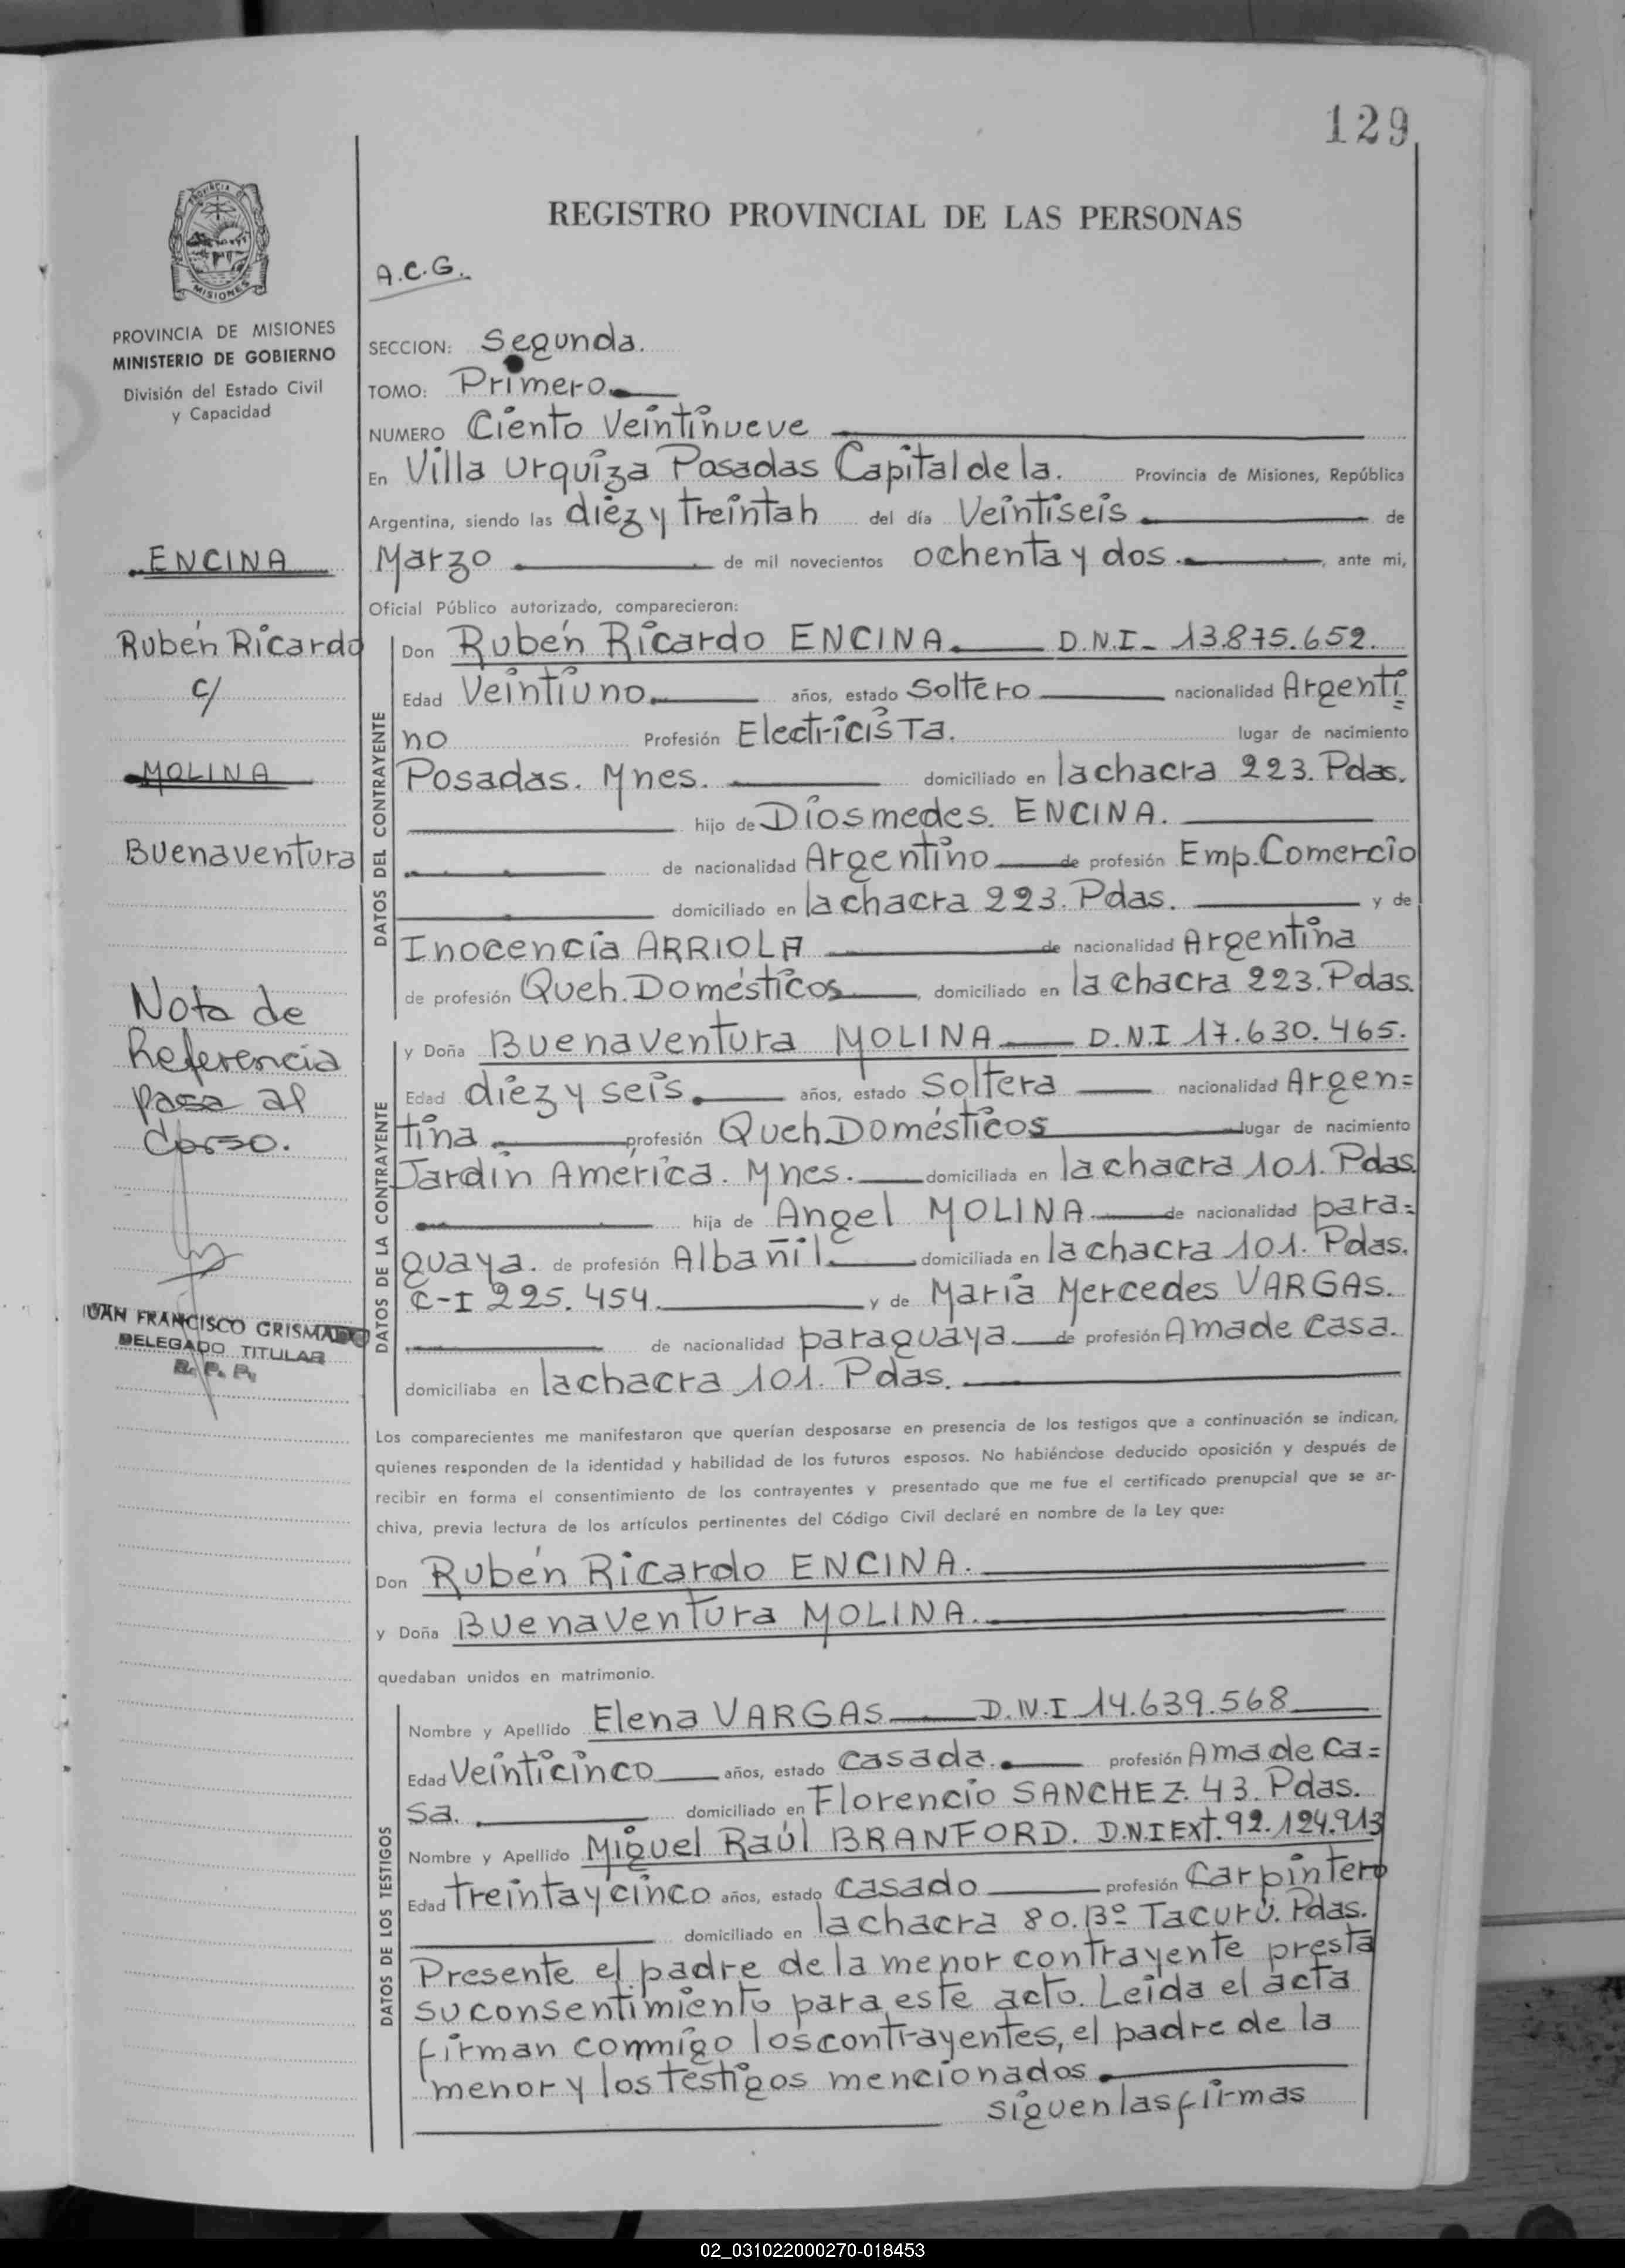 129
REGISTRO PROVINCIAL DE LAS PERSONAS
A.C.G.
PROVINCIA DE MISIONES
MINISTERIO DE GOBIERNO
División del Estado Civil
y Capacidad
SECCION: Segunda.
TOMO: Primero
NUMERO Ciento Veintinueve
En Villa Urquiza Posadas Capital de la. Provincia de Misiones, República
Argentina, siendo las diez y treinta h del día Veintiseis de
Marzo de mil novecientos ochenta y dos. , ante mi,
Oficial Público autorizado, comparecieron:
ENCINA
Rubén Ricardo
c/
MOLINA
Buenaventura
Nota de
Referencia
pasa al
Dorso.
JUAN FRANCISCO GRISMADO
DELEGADO TITULAR
R. P. P.
DATOS DEL CONTRAYENTE
Don Rubén Ricardo ENCINA. D.N.I- 13.875.652.
Edad Veintiuno. años, estado Soltero nacionalidad Argenti=
no Profesión Electricista. lugar de nacimiento
Posadas. Mnes. domiciliado en la chacra 223. Pdas.
hijo de Diosmedes. ENCINA.
de nacionalidad Argentino de profesión Emp. Comercio
domiciliado en la chacra 223. Pdas. y de
Inocencia ARRIOLA de nacionalidad Argentina
de profesión Queh. Domésticos , domiciliado en la chacra 223. Pdas.
DATOS DE LA CONTRAYENTE
y Doña Buenaventura MOLINA D.N.I 17.630.465.
Edad diez y seis. años, estado Soltera nacionalidad Argen=
tina profesión Queh. Domésticos lugar de nacimiento
Jardín América. Mnes. domiciliada en la chacra 101. Pdas.
hija de Angel MOLINA de nacionalidad para=
guaya. de profesión Albañil. domiciliada en la chacra 101. Pdas.
C-I 225.454. y de María Mercedes VARGAS.
de nacionalidad paraguaya de profesión Ama de Casa.
domiciliaba en la chacra 101. Pdas.
Los comparecientes me manifestaron que querían desposarse en presencia de los testigos que a continuación se indican,
quienes responden de la identidad y habilidad de los futuros esposos. No habiéndose deducido oposición y después de
recibir en forma el consentimiento de los contrayentes y presentado que me fue el certificado prenupcial que se ar-
chiva, previa lectura de los artículos pertinentes del Código Civil declaré en nombre de la Ley que:
Don Rubén Ricardo ENCINA.
y Doña Buenaventura MOLINA.
quedaban unidos en matrimonio.
DATOS DE LOS TESTIGOS
Nombre y Apellido Elena VARGAS D.N.I 14.639.568
Edad Veinticinco años, estado Casada. profesión Ama de Ca=
sa. domiciliado en Florencio SANCHEZ. 43. Pdas.
Nombre y Apellido Miguel Raúl BRANFORD. D.N.I Ext. 92.124.913
Edad treinta y cinco años, estado Casado profesión Carpintero
domiciliado en la chacra 80. Bº Tacurú. Pdas.
Presente el padre de la menor contrayente presta
su consentimiento para este acto. Leida el acta
firman conmigo los contrayentes, el padre de la
menor y los testigos mencionados.
siguen las firmas
02_031022000270-018453